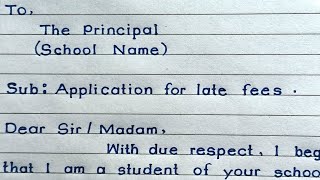 To,
The Principal
(School Name)
Sub: Application for late fees.
Dear Sir/Madam,
With due respect, I beg
that I am a student of your schoo